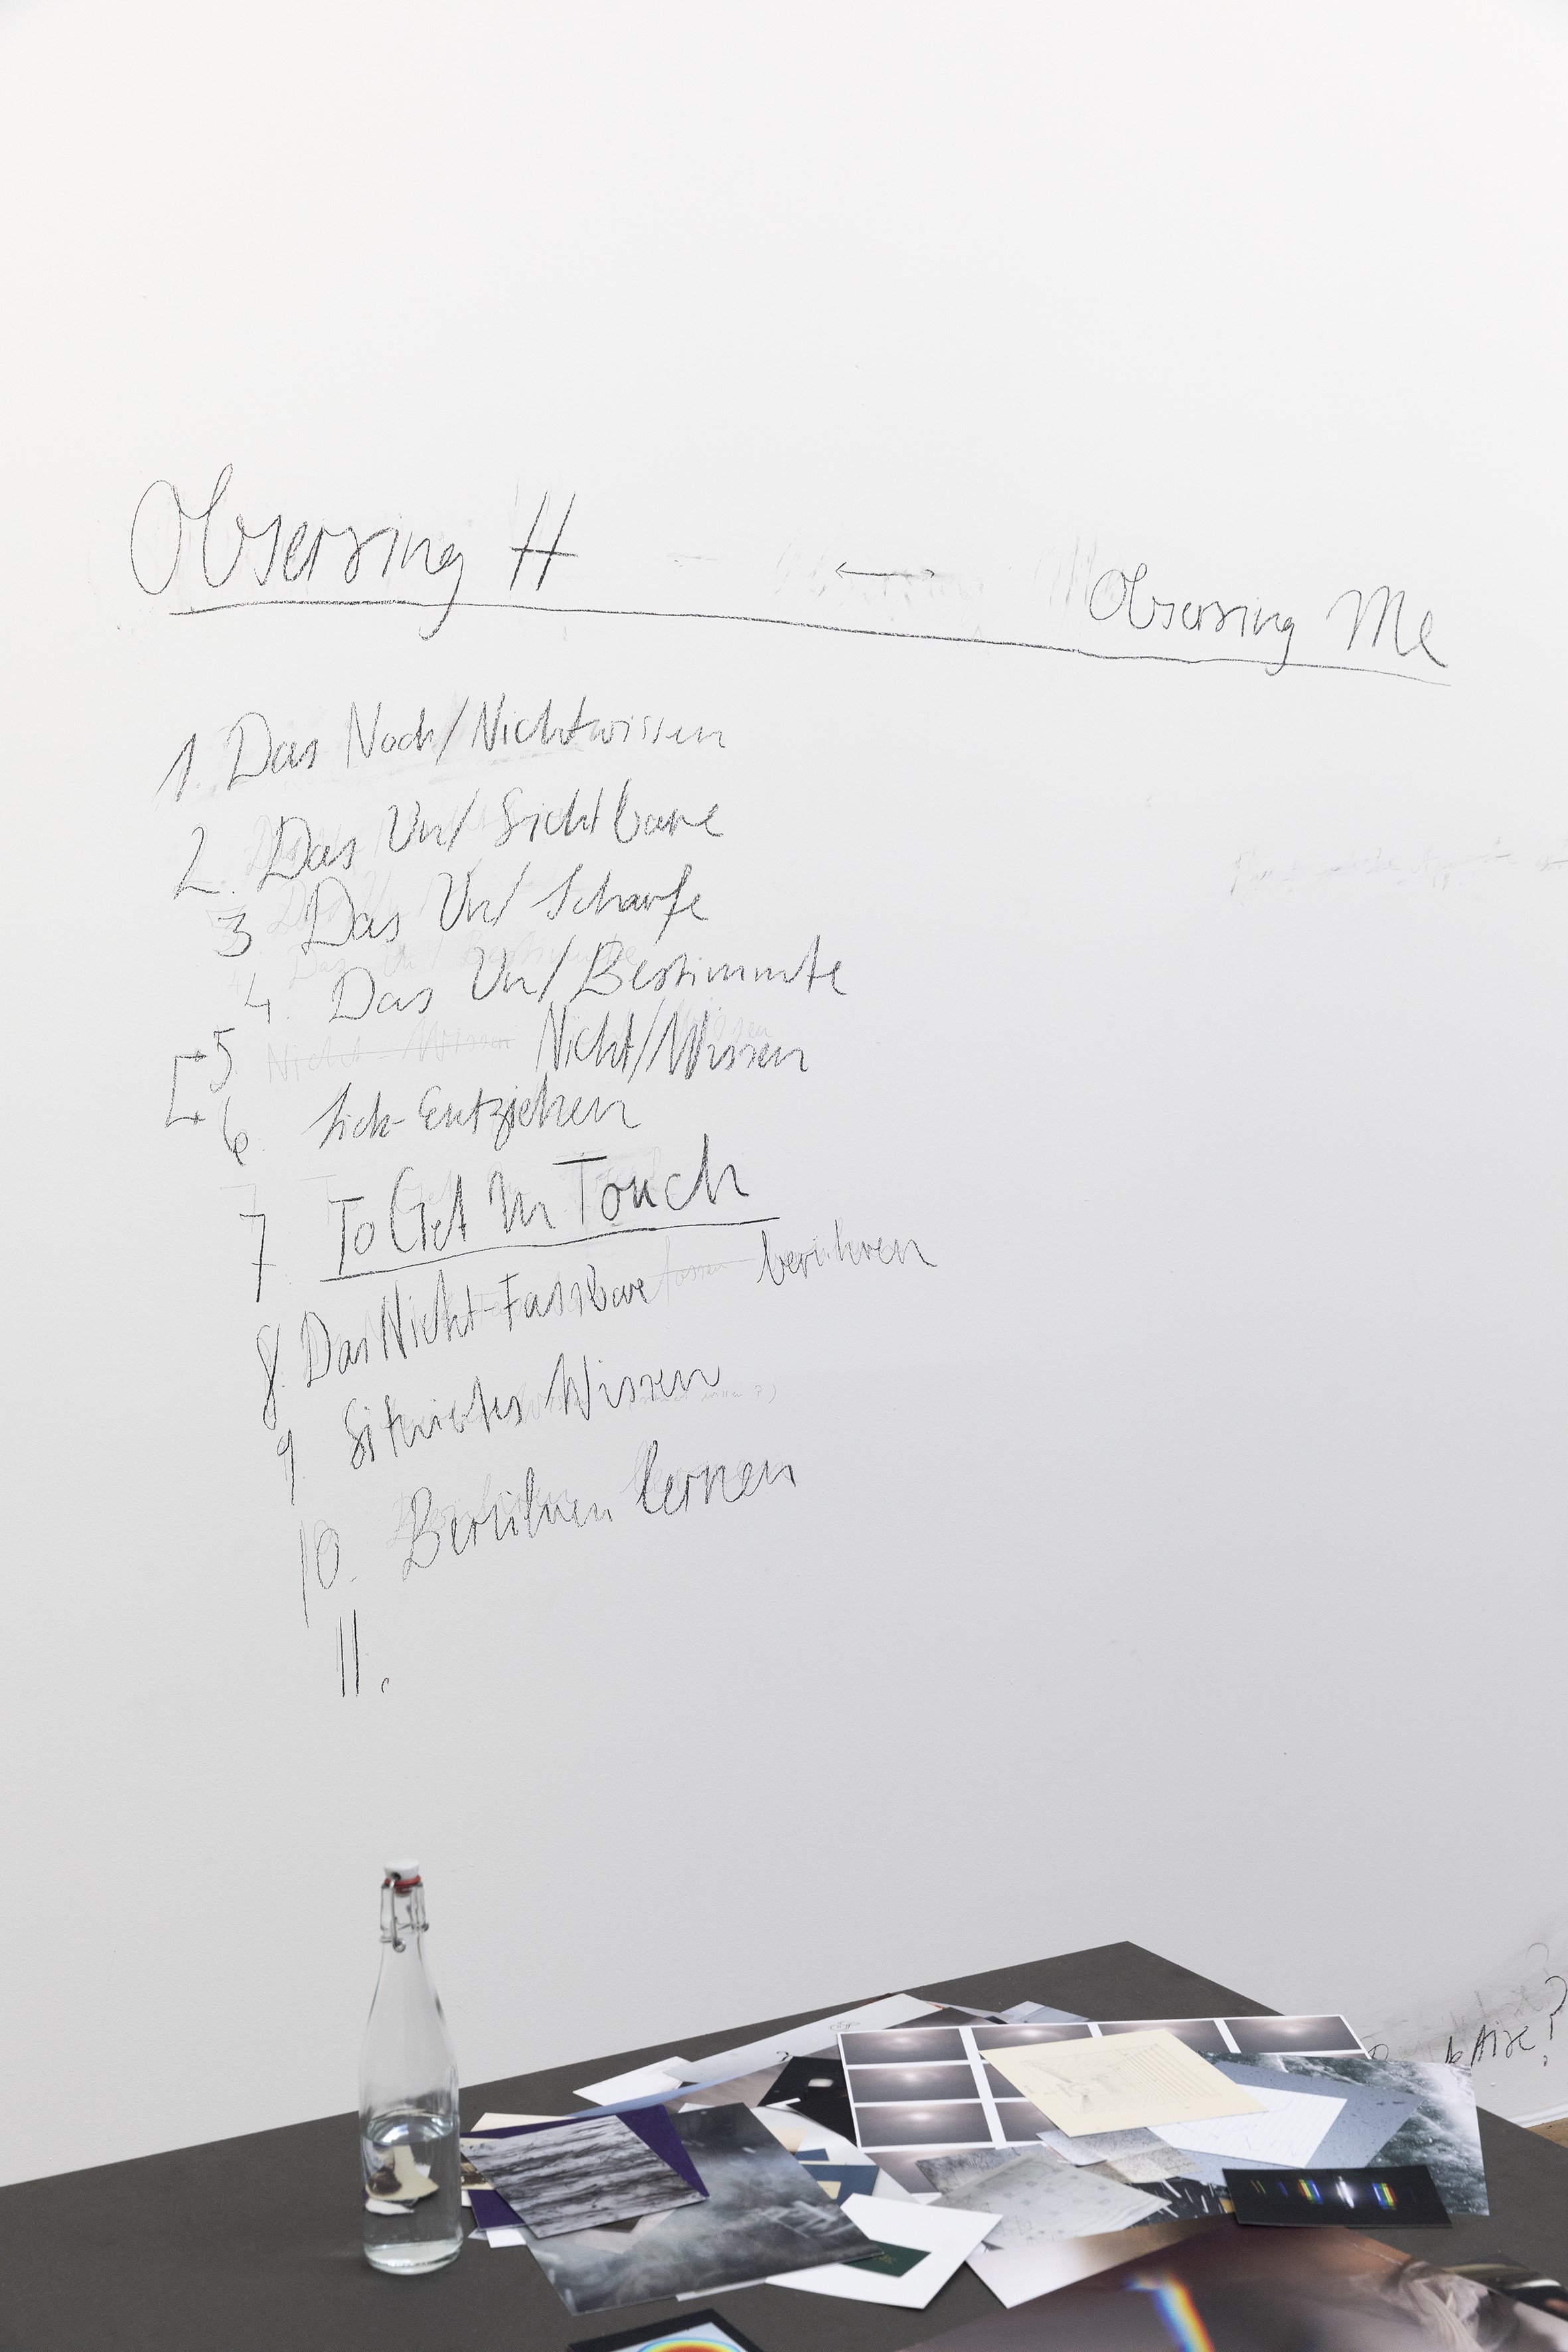 Observing H ⟷ Observing Me
1. Das Noch/Nichtwissen
2. Das Un/Sichtbare
3 Das Un/Scharfe
4. Das Un/Bestimmte
5. Nicht-Wissen Nicht/Wissen
6 Sich-Entziehen
7 To Get In Touch
8. Das Nicht-Fassbare fassen berühren
9 Situiertes Wissen
10. Berühren lernen
11.